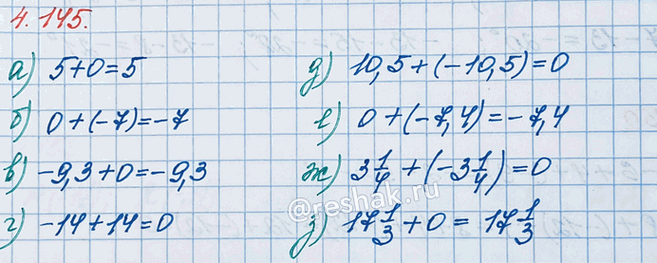 4.145.
а) 5+0=5
б) 0+(-7)=-7
в) -9,3+0=-9,3
г) -14+14=0
д) 10,5+(-10,5)=0
е) 0+(-7,4)=-7,4
ж) 3 1/4 +(-3 1/4)=0
з) 17 1/3 +0 = 17 1/3
@reshak.ru